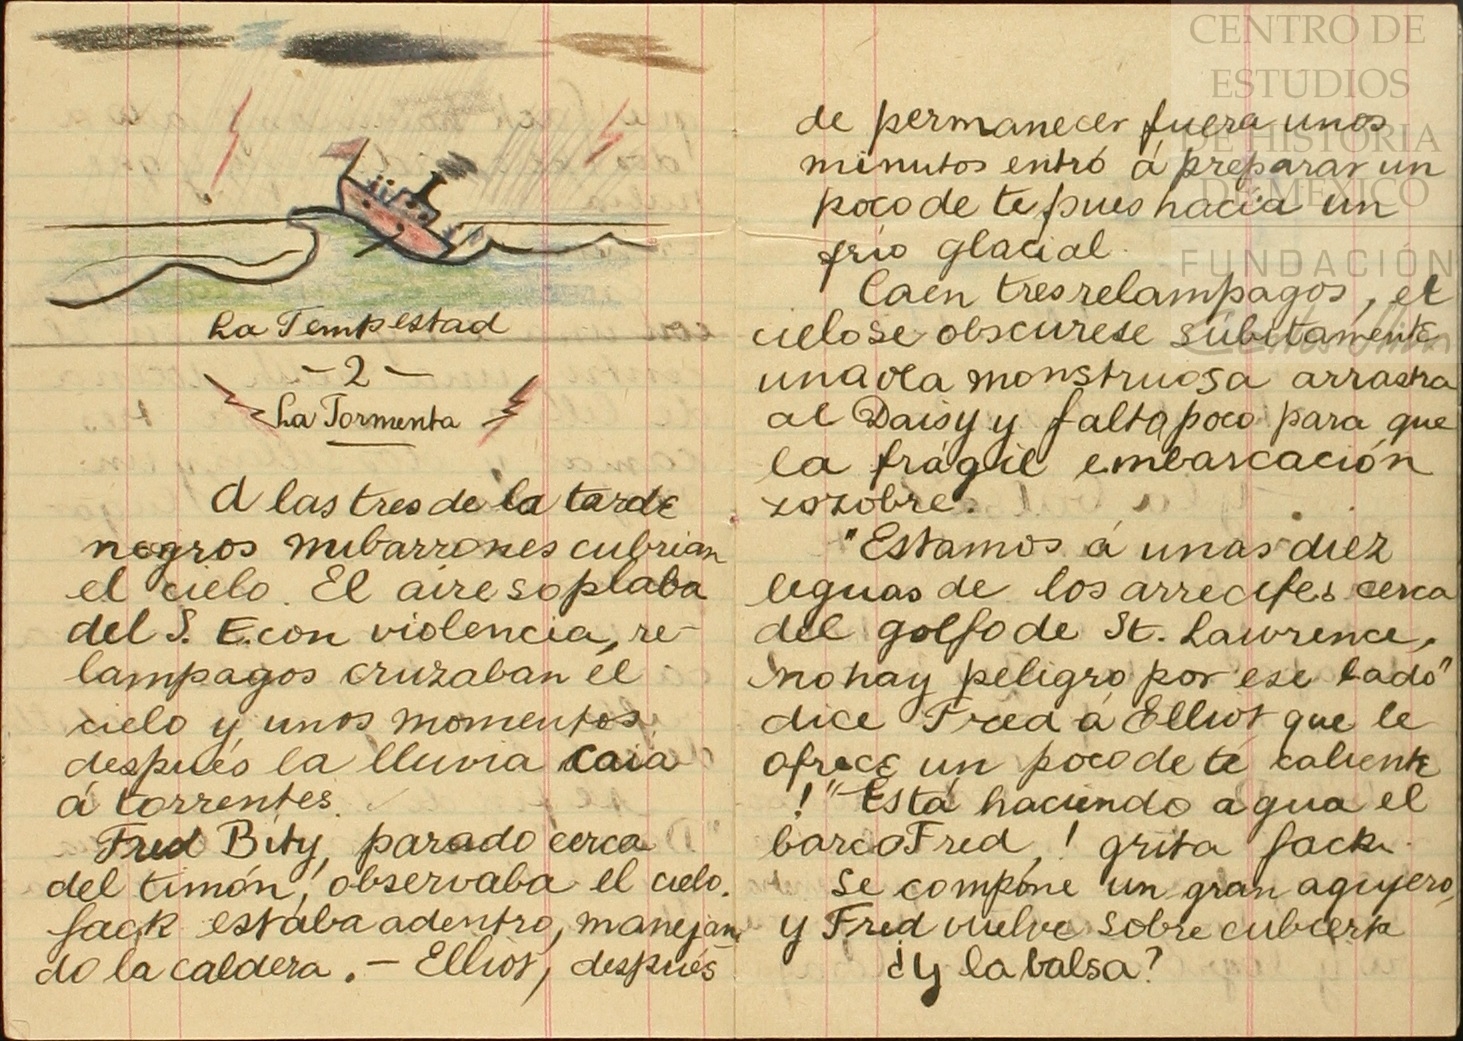 La Tempestad
- 2 -
La Tormenta
A las tres de la tarde
negros nubarrones cubrian
el cielo. El aire soplaba
del S. E. con violencia, re-
lampagos cruzaban el
cielo y unos momentos
después la lluvia caia
á torrentes.
Fred Bity, parado cerca
del timón, observaba el cielo.
Jack estaba adentro, manejan
do la caldera. - Elliot, después
CENTRO DE
ESTUDIOS
DE HISTORIA
DE MEXICO
FUNDACIÓN
Carlos Slim
de permanecer fuera unos
minutos entró á preparar un
poco de te pues hacia un
frío glacial.
Caen tres relampagos, el
cielo se obscurese súbitamente
una ola monstruosa arrastra
al Daisy y falta poco para que
la frágil embarcación
zozobre.
"Estamos á unas diez
leguas de los arrecifes cerca
del golfo de St. Lawrence,
no hay peligro por ese lado"
dice Fred á Elliot que le
ofrece un poco de té caliente
!" Está haciendo agua el
barco Fred, ! grita Jack.
Se compone un gran agujero,
y Fred vuelve sobre cubierta
¿Y la balsa?